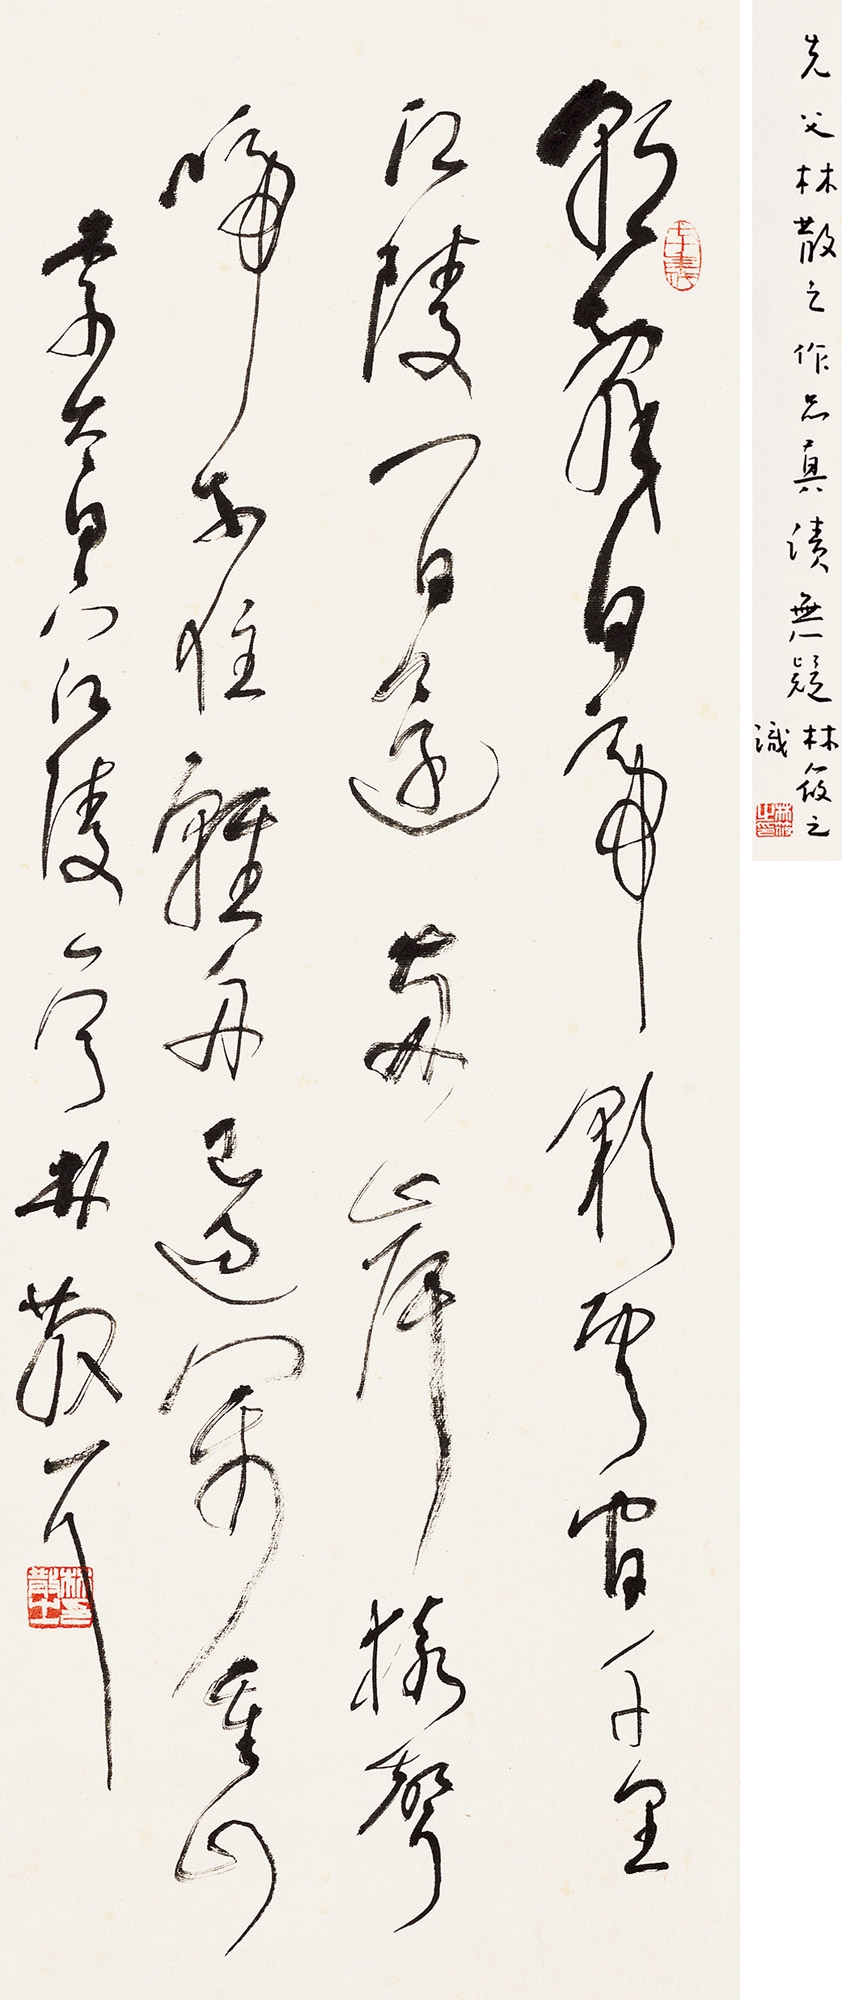 朝辭白帝彩雲間千里
江陵一日還兩岸猿聲
啼不住輕舟已過萬重山
李太白下江陵林散耳
林散之印
先父林散之作品真蹟無疑林筱之
識
林筱之印